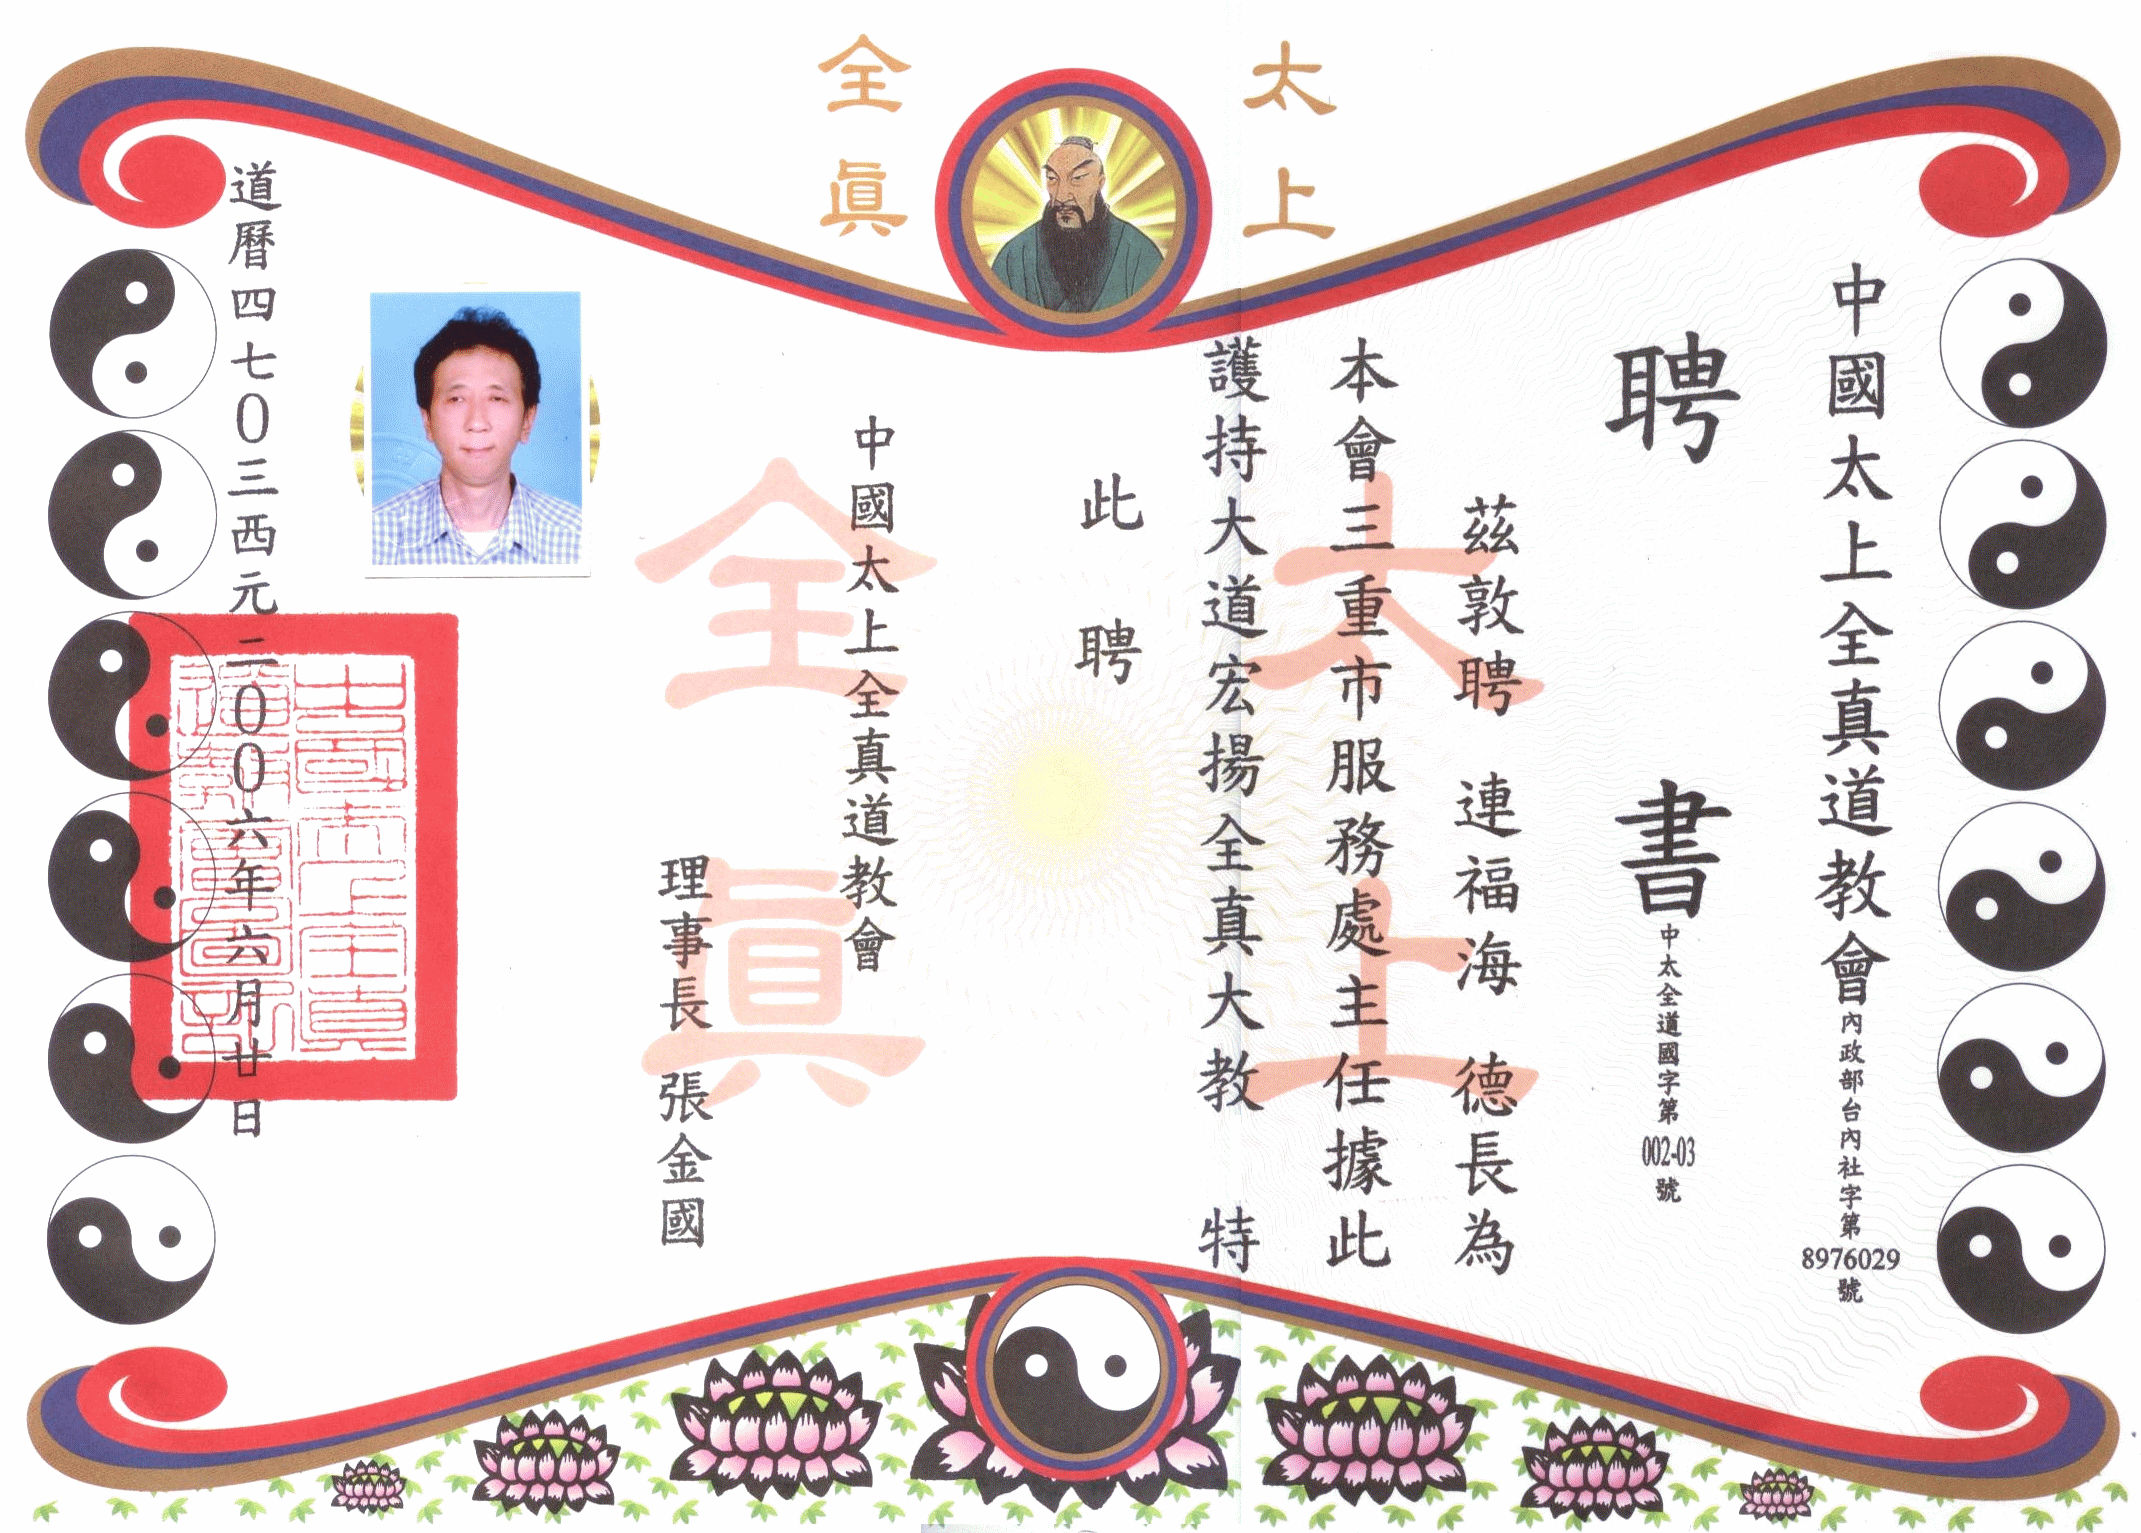 太上
全眞
中國太上全真道教會內政部台內社字第8976029號
聘書中太全道國字第002-03號
茲敦聘 連福海 德長為
本會三重市服務處主任據此
護持大道宏揚全真大教 特
此聘
中國太上全真道教會
理事長 張金國
道曆四七0三西元二00六年六月廿日
太上
全眞